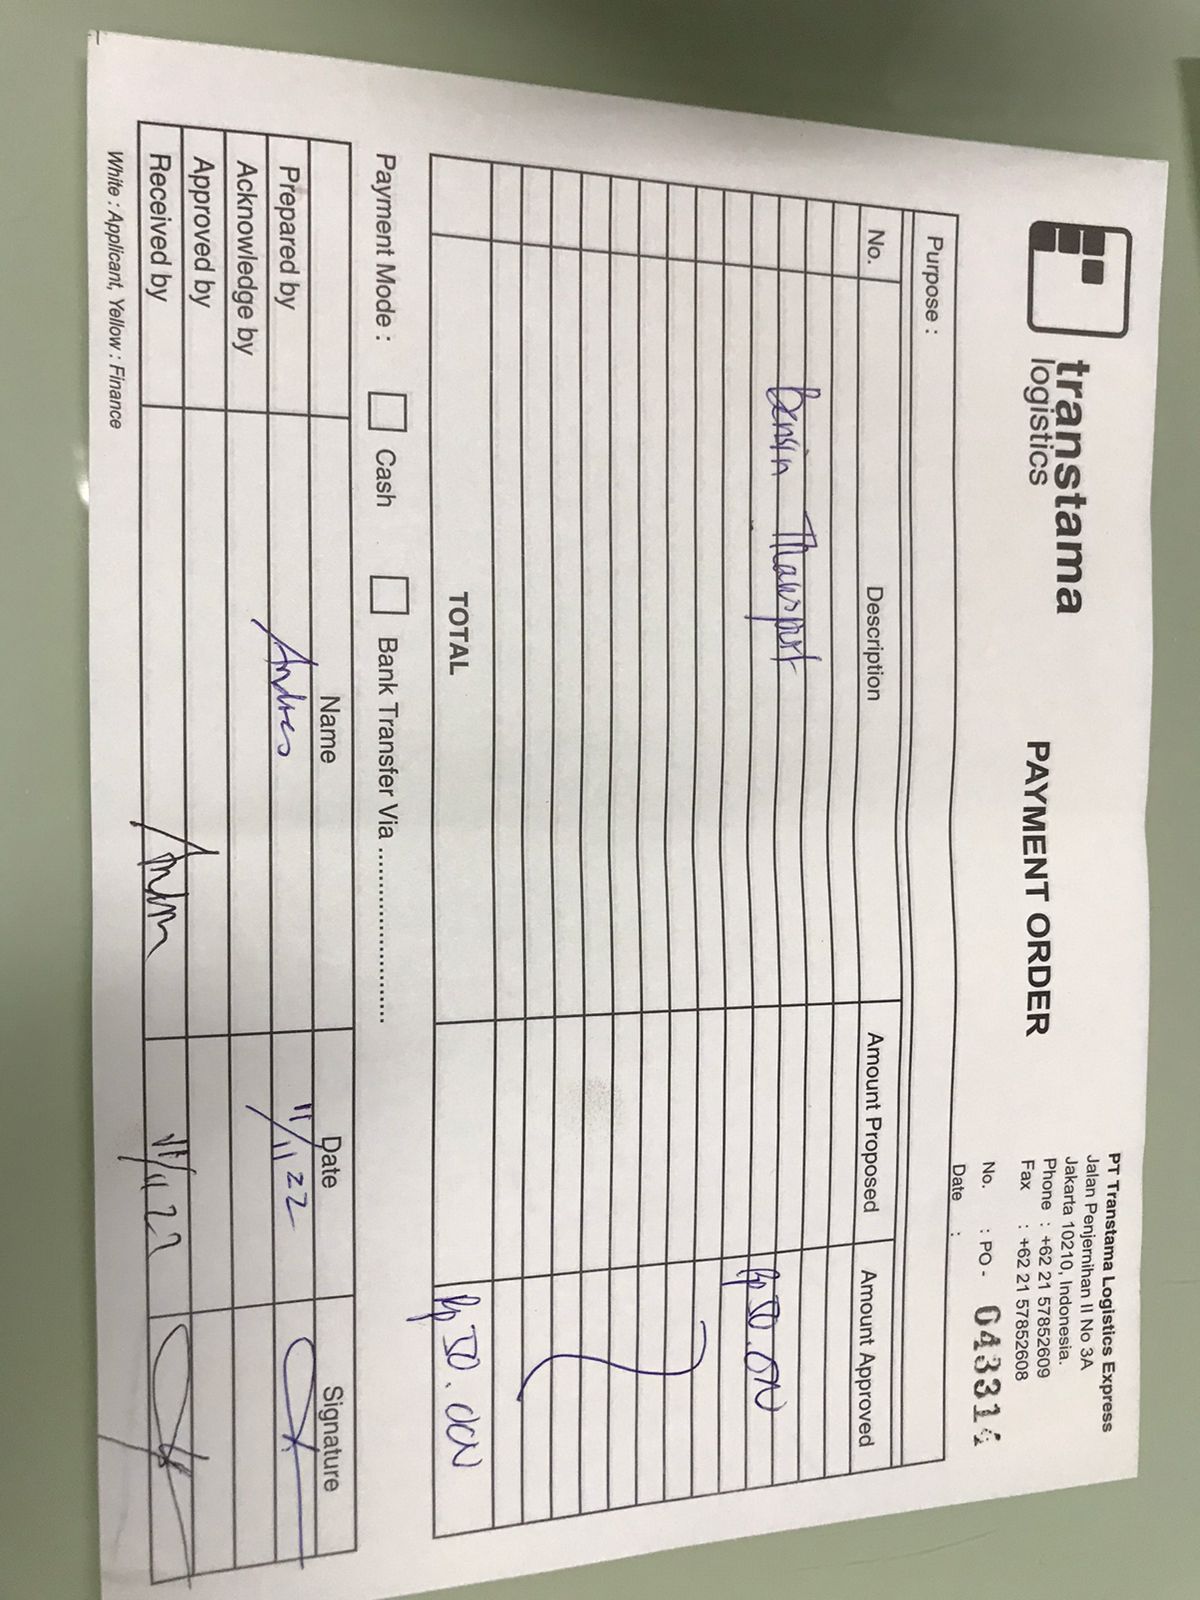 transtama
logistics
PAYMENT ORDER
PT Transtama Logistics Express
Jalan Penjernihan II No 3A
Jakarta 10210, Indonesia.
Phone : +62 21 57852609
Fax : +62 21 57852608
No. : PO - 043314
Date :
Purpose :
No. Description Amount Proposed Amount Approved
Bensin Transport Rp 50.000
TOTAL Rp 50.000
Payment Mode : Cash Bank Transfer Via ........................
Name Date Signature
Prepared by Andres 11/11 22
Acknowledge by
Approved by
Received by 11/11 22
White : Applicant, Yellow : Finance